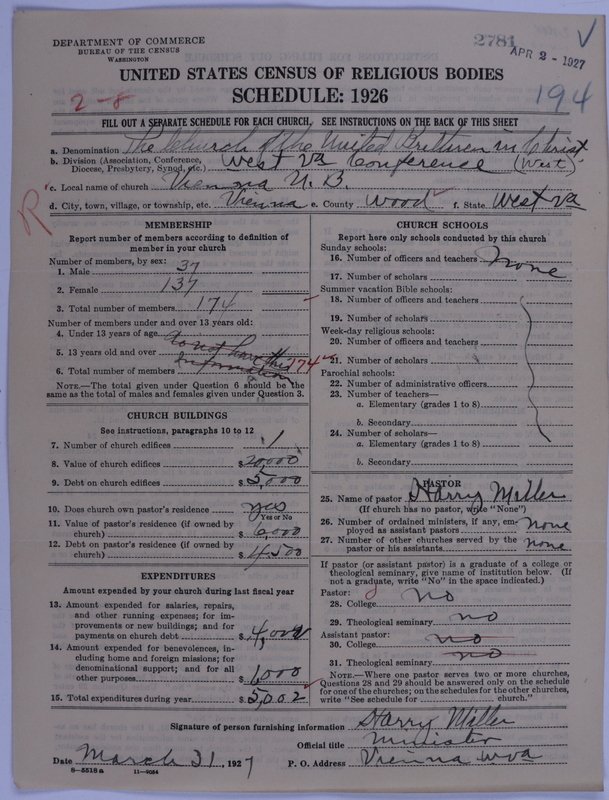 DEPARTMENT OF COMMERCE
BUREAU OF THE CENSUS
WASHINGTON
2781
APR 2 - 1927
UNITED STATES CENSUS OF RELIGIOUS BODIES
SCHEDULE: 1926
2-8
194
FILL OUT A SEPARATE SCHEDULE FOR EACH CHURCH. SEE INSTRUCTIONS ON THE BACK OF THIS SHEET
a. Denomination The Church of the United Brethren in Christ
b. Division (Association, Conference, Diocese, Presbytery, Synod, etc.) West Va Conference (West)
c. Local name of church Vienna U. B.
d. City, town, village, or township, etc. Vienna e. County Wood f. State West Va
R
MEMBERSHIP
Report number of members according to definition of member in your church
Number of members, by sex:
1. Male 37
2. Female 137
3. Total number of members 174
Number of members under and over 13 years old:
4. Under 13 years of age
5. 13 years old and over
do not have this information
6. Total number of members 174
NOTE.—The total given under Question 6 should be the same as the total of males and females given under Question 3.
CHURCH BUILDINGS
See instructions, paragraphs 10 to 12
7. Number of church edifices 1
8. Value of church edifices $ 20,000
9. Debt on church edifices $ 5,000
10. Does church own pastor's residence yes
Yes or No
11. Value of pastor's residence (if owned by church) $ 6,000
12. Debt on pastor's residence (if owned by church) $ 4500
EXPENDITURES
Amount expended by your church during last fiscal year
13. Amount expended for salaries, repairs, and other running expenses; for improvements or new buildings; and for payments on church debt $ 4,002
14. Amount expended for benevolences, including home and foreign missions; for denominational support; and for all other purposes $ 1,000
15. Total expenditures during year $ 5,002
CHURCH SCHOOLS
Report here only schools conducted by this church
Sunday schools:
16. Number of officers and teachers none
17. Number of scholars
Summer vacation Bible schools:
18. Number of officers and teachers
19. Number of scholars
Week-day religious schools:
20. Number of officers and teachers
21. Number of scholars
Parochial schools:
22. Number of administrative officers
23. Number of teachers—
a. Elementary (grades 1 to 8)
b. Secondary
24. Number of scholars—
a. Elementary (grades 1 to 8)
b. Secondary
PASTOR
25. Name of pastor Harry Miller
(If church has no pastor, write "None")
26. Number of ordained ministers, if any, employed as assistant pastors none
27. Number of other churches served by the pastor or his assistants none
If pastor (or assistant pastor) is a graduate of a college or theological seminary, give name of institution below. (If not a graduate, write "No" in the space indicated.)
Pastor:
28. College no
29. Theological seminary no
Assistant pastor:
30. College no
31. Theological seminary no
NOTE.—Where one pastor serves two or more churches, Questions 28 and 29 should be answered only on the schedule for one of the churches; on the schedules for the other churches, write "See schedule for church."
Signature of person furnishing information Harry Miller
Official title Minister
Date March 31, 1927 P. O. Address Vienna W Va
8—5518 a 11—9054